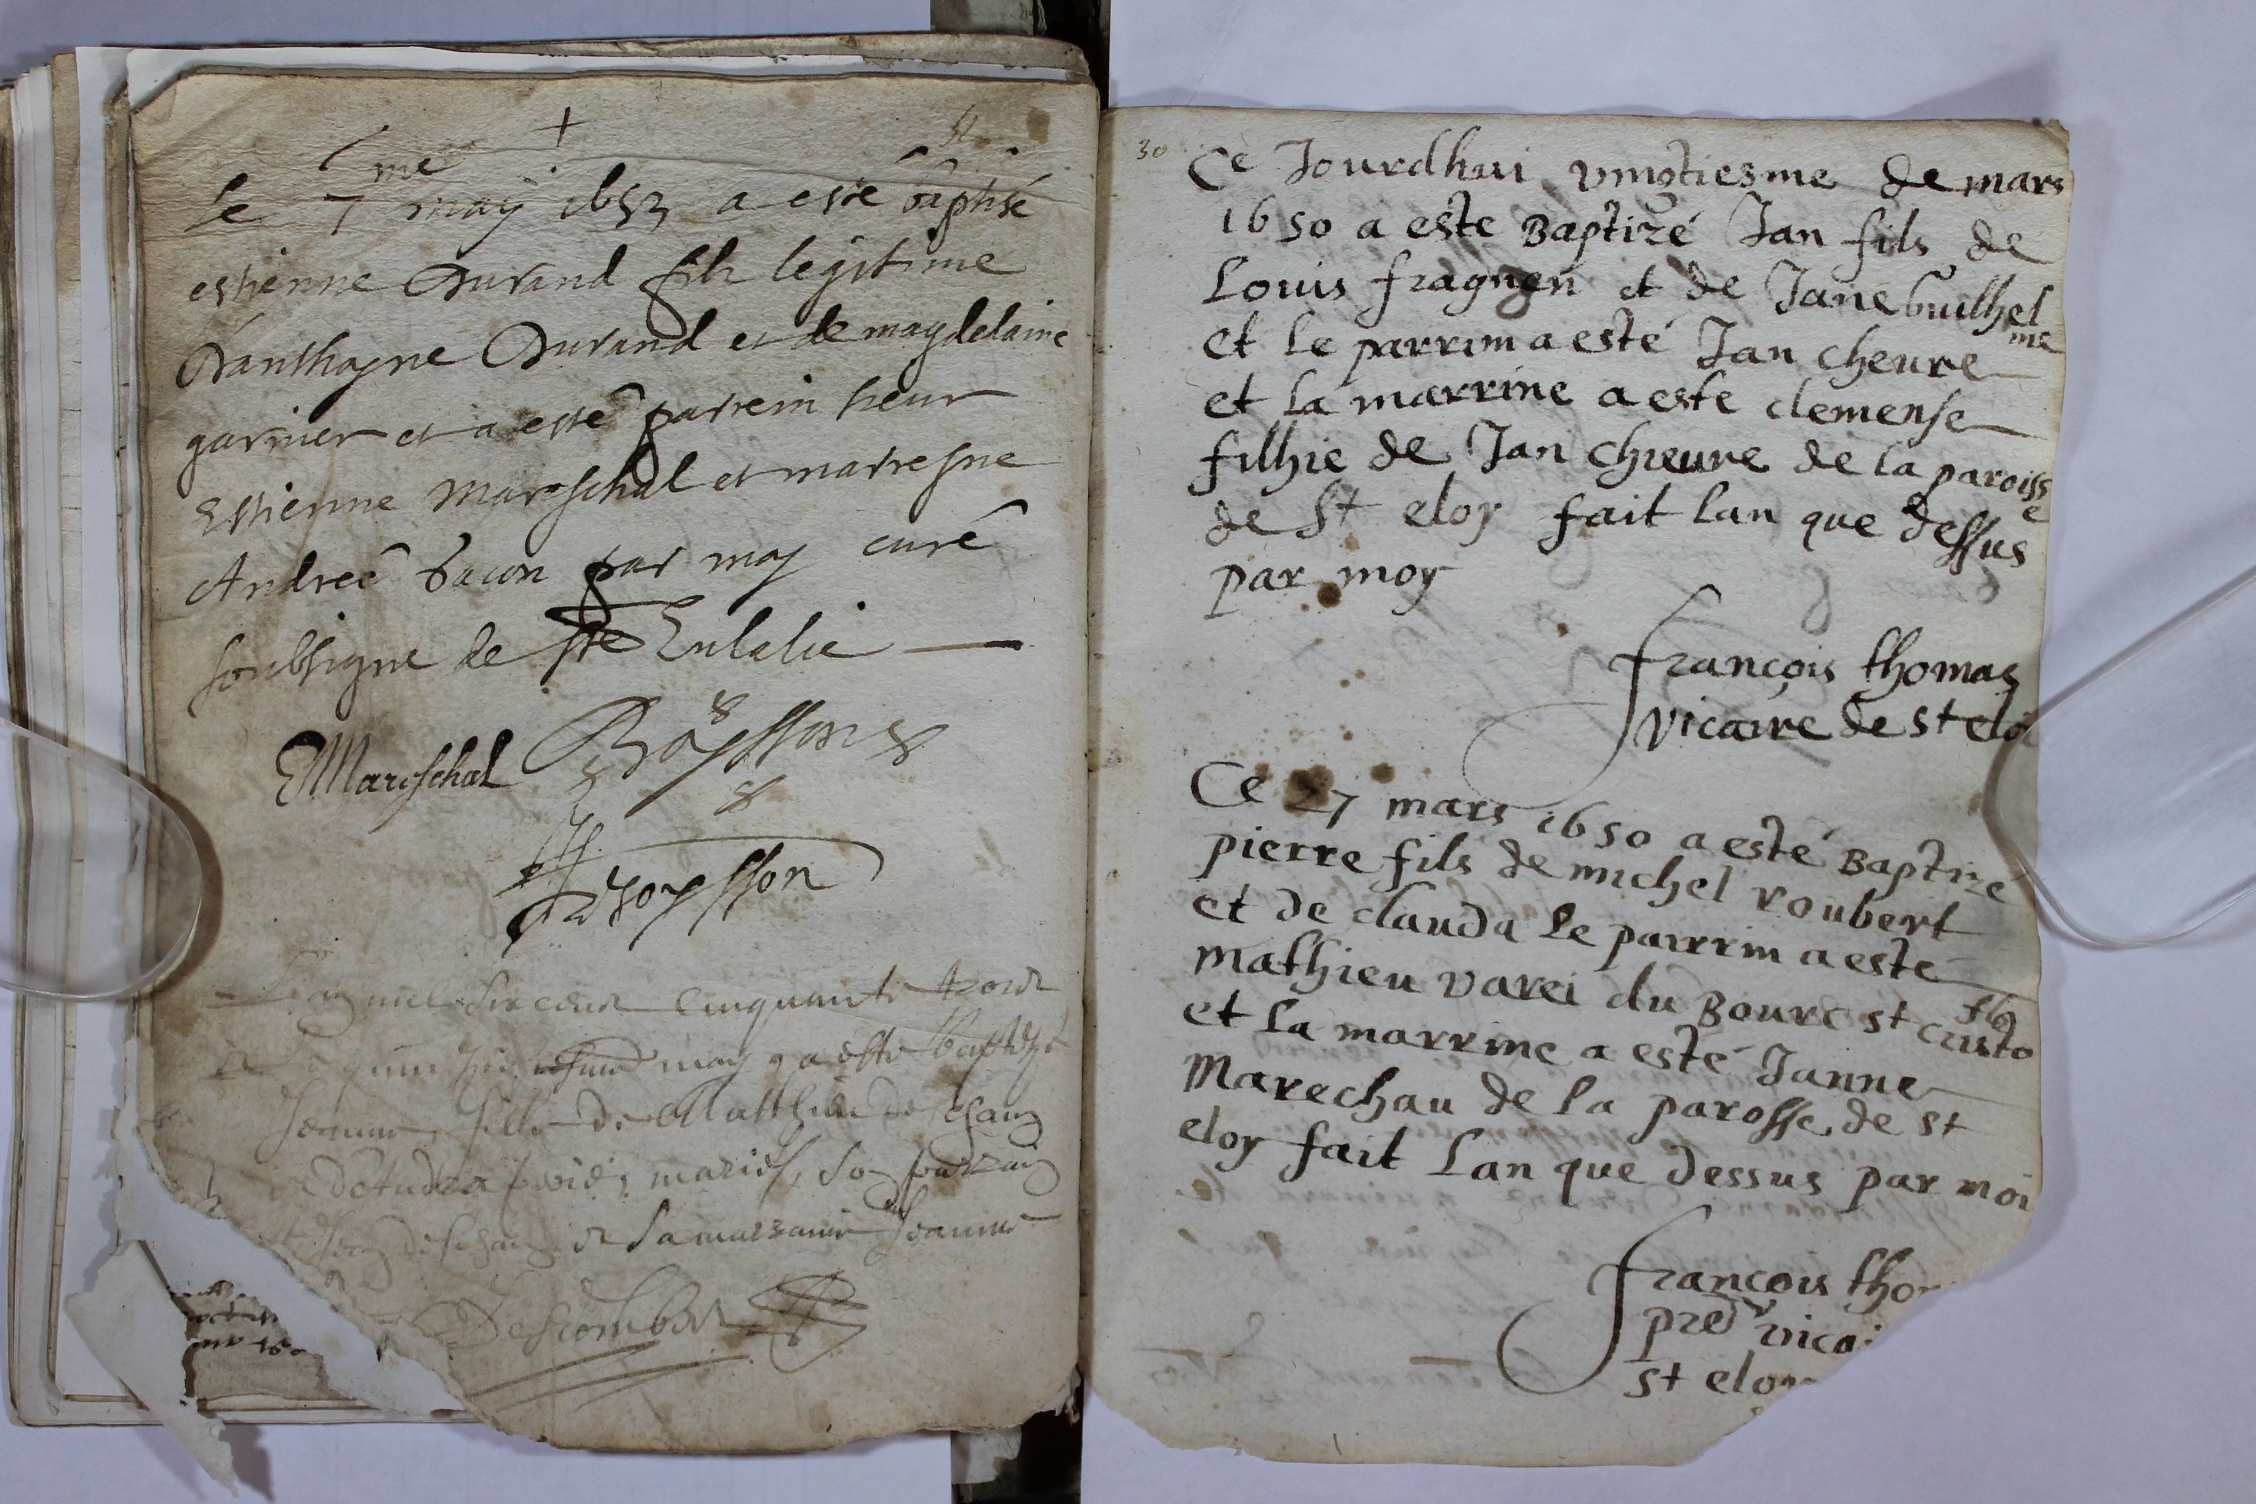 Le 7me may 1653 a este baptisé
estienne Durand filz legitime
d'anthoyne Durand et de magdelaine
garnier et a esté parrein sieur
Estienne Mareschal et marresne
Andreé bacon par moy curé
soubsigne de ste Eulalie
EMareschal Boysson
Boysson
Lan mil six cens Cinquante trois
et may a este Baptizé
Jeanne fille de Matthieu deschan
mariés, son parrain
et la marraine Jeanne
Descombes
30
Ce Jourdhui vingtiesme de mars
1650 a este Baptizé Jan fils de
Louis fragnen et de Jane Guilhel
me
et le parrim a esté Jan cheure
et la marrine a este clemense
filhie de Jan chieure de la paroiss
e
de St eloy fait lan que dessus
par moy
françois thomas
vicaire de st eloi
Ce 27 mars 1650 a esté Baptizé
pierre fils de michel roubert
et de clauda le parrim a esté
mathieu varei du Bourc st cristo
fle
et la marrine a esté Janne
Marechau de la parosse de st
eloy fait lan que dessus par moi
françois tho
pred vicai
st eloy